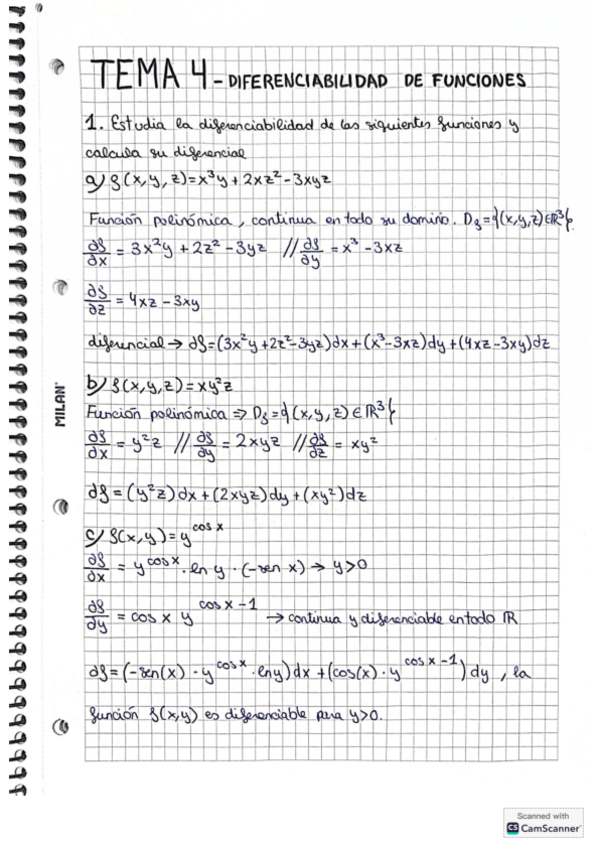 TEMA 4 - DIFERENCIABILIDAD DE FUNCIONES
1. Estudia la diferenciabilidad de las siguientes funciones y
calcula su diferencial
a) f(x,y,z)=x³y+2xz²-3xyz
Función polinómica, continua en todo su dominio. Df={(x,y,z)∈ℝ³}.
∂f/∂x = 3x²y+2z²-3yz // ∂f/∂y = x³-3xz
∂f/∂z = 4xz-3xy
diferencial → ∂f=(3x²y+2z²-3yz)dx+(x³-3xz)dy+(4xz-3xy)dz
b) f(x,y,z)=xy²z
Función polinómica ⇒ Df={(x,y,z)∈ℝ³}
∂f/∂x = y²z // ∂f/∂y = 2xyz // ∂f/∂z = xy²
∂f=(y²z)dx+(2xyz)dy+(xy²)dz
c) f(x,y)=y^cos x
∂f/∂x = y^cos x · ln y · (-sen x) → y>0
∂f/∂y = cos x y^cos x -1 → continua y diferenciable en todo ℝ
∂f=(-sen(x) · y^cos x · ln y)dx+(cos(x) · y^cos x -1)dy, la
función f(x,y) es diferenciable para y>0.
MILAN
Scanned with
CS CamScanner